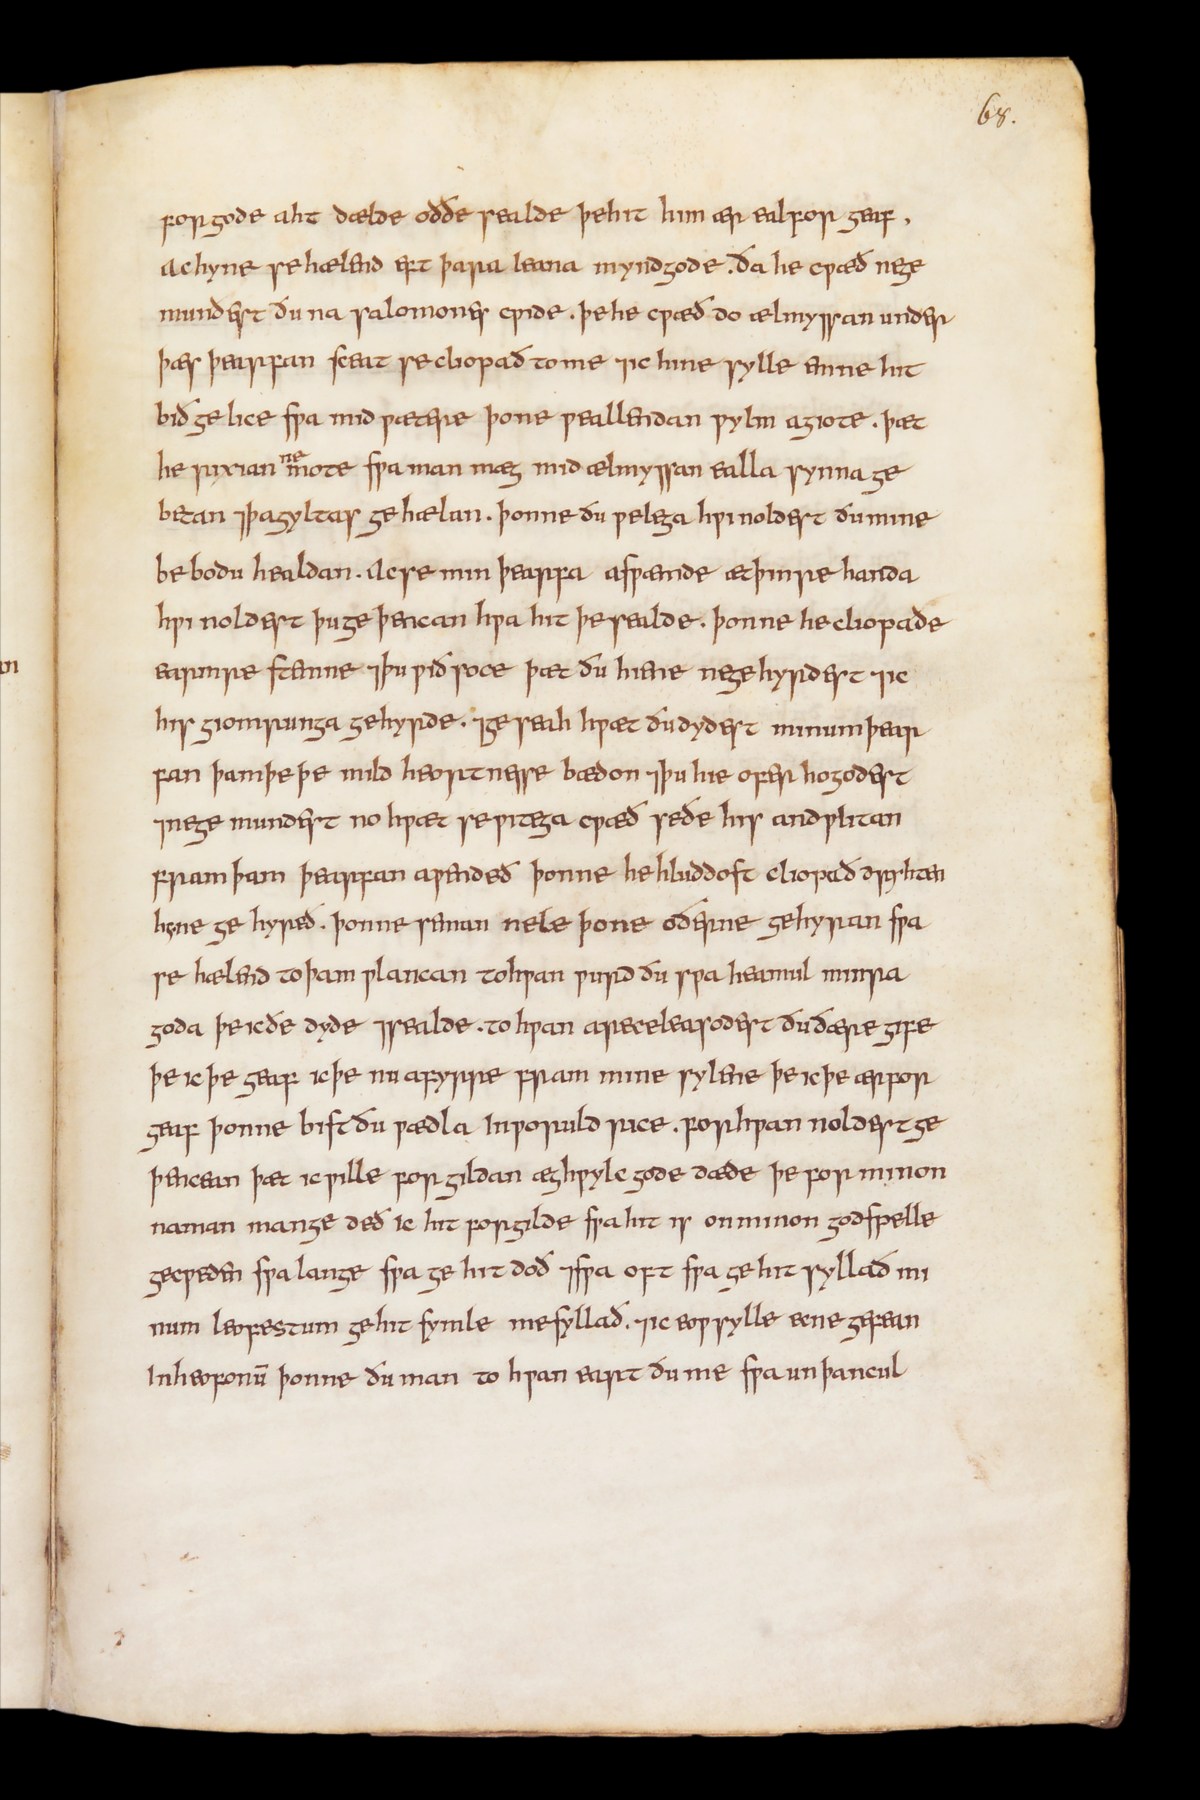 68.
for gode aht dælde oððe sealde þe hit him ær eal for geaf,
Ac hyne se hælend eft þara leana myndgode . ða he cƿæð ne ge
mundest ðu na salomones cƿide . þe he cƿæð do ælmyssan under
þæs þearfan sceat se cliopað to me ⁊ ic hine sylle enne hit
bið ge lice sƿa mid ƿætere þone ƿeallendan ƿylm agiote . þæt
he rixian ne mote sƿa man mæg mid ælmyssan ealla synna ge
betan ⁊ þa gyltas ge hælan . þonne ðu ƿelega hƿi noldest ðu mine
be bodu healdan . Ac se min þearfa asƿænde æt þinre handa
hƿi noldest þu ge þencan hƿa hit þe sealde . þonne he cliopade
earmre stenne ⁊ þu ƿið soce þæt ðu hiene ne ge hyrdest ⁊ ic
his giomrunga ge hyrde . ⁊ ge seah hƿæt ðu dydest minum þear
fan þam þe þe mild heortnesse bædon ⁊ þu hie ofer hogodest
⁊ ne ge mundest no hƿæt se ƿitega cƿæð se ðe his andƿlitan
fram þam þearfan aƿendeð þonne he hluddost cliopað dryhten
hyne ge hyreð . þonne seman nele þone oðerne ge hyran sƿa
se hælend to þam ƿlancan to hƿan ƿurd ðu sƿa heamul minra
goda þe ic ðe dyde ⁊ sealde . to hƿan areceleasodest ðu ðære gife
þe ic þe geaf ic þe nu afyrre fram mine sylene þe ic þe ær for
geaf þonne bist ðu ƿædla In ƿoruld rice . for hƿan noldest ge
þencean þæt ic ƿille for gildan æghƿylc gode dæde þe for minon
naman mange deð ic hit forgilde sƿa hit is on minon godspelle
gecƿeden sƿa lange sƿa ge hit doð ⁊ sƿa oft sƿa ge hit syllað mi
num leofestum ge hit symle me syllað . ⁊ ic eoƿ sylle ecne gefean
In heofonū þonne ðu man to hƿan eart ðu me sƿa unþancul